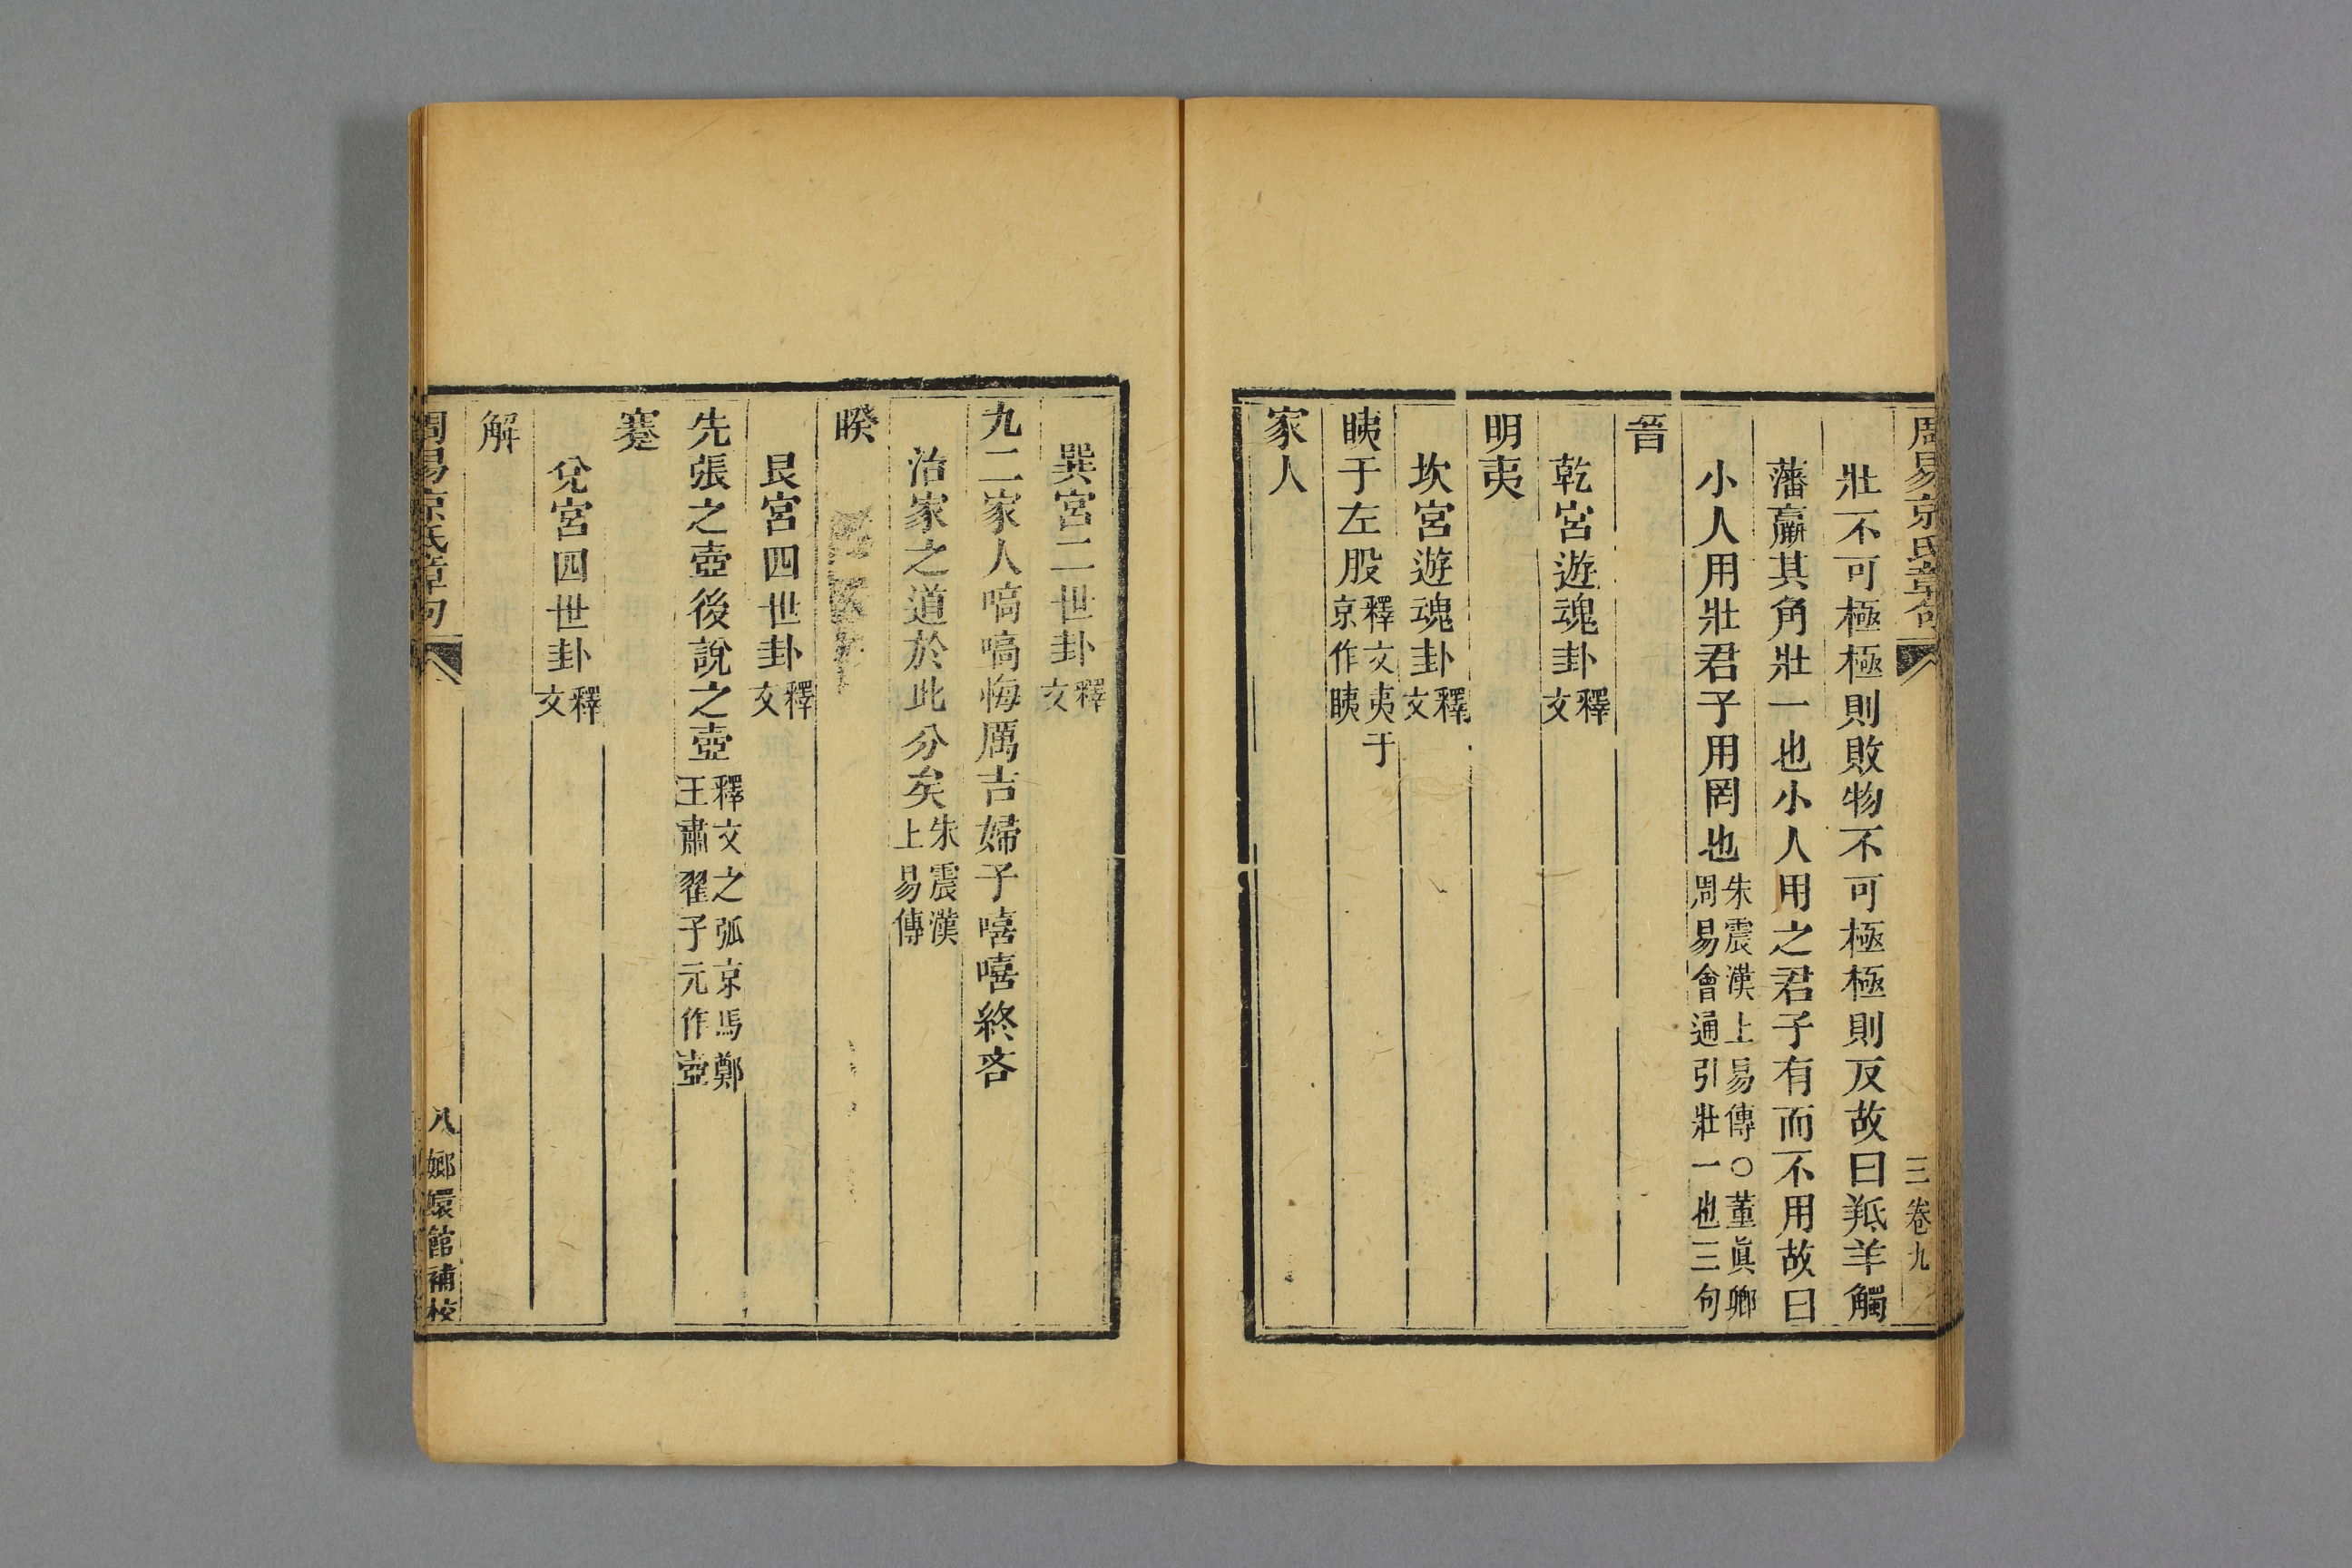 周易京氏章句
三卷九
壯不可極極則敗物不可極極則反故曰羝羊觸
藩羸其角壯一也小人用之君子有而不用故曰
小人用壯君子用罔也朱震漢上易傳○董眞卿周易會通引壯一也三句
晉
乾宮遊魂卦釋文
明夷
坎宮遊魂卦釋文
眱于左股釋文夷于京作眱
家人
巽宮二世卦釋文
九二家人嗃嗃悔厲吉婦子嘻嘻終吝
治家之道於此分矣朱震漢上易傳
睽
艮宮四世卦釋文
先張之壺後說之壺釋文之弧京馬鄭王肅翟子元作壺
蹇
兌宮四世卦釋文
解
周易京氏章句
八
嫏嬛館補校